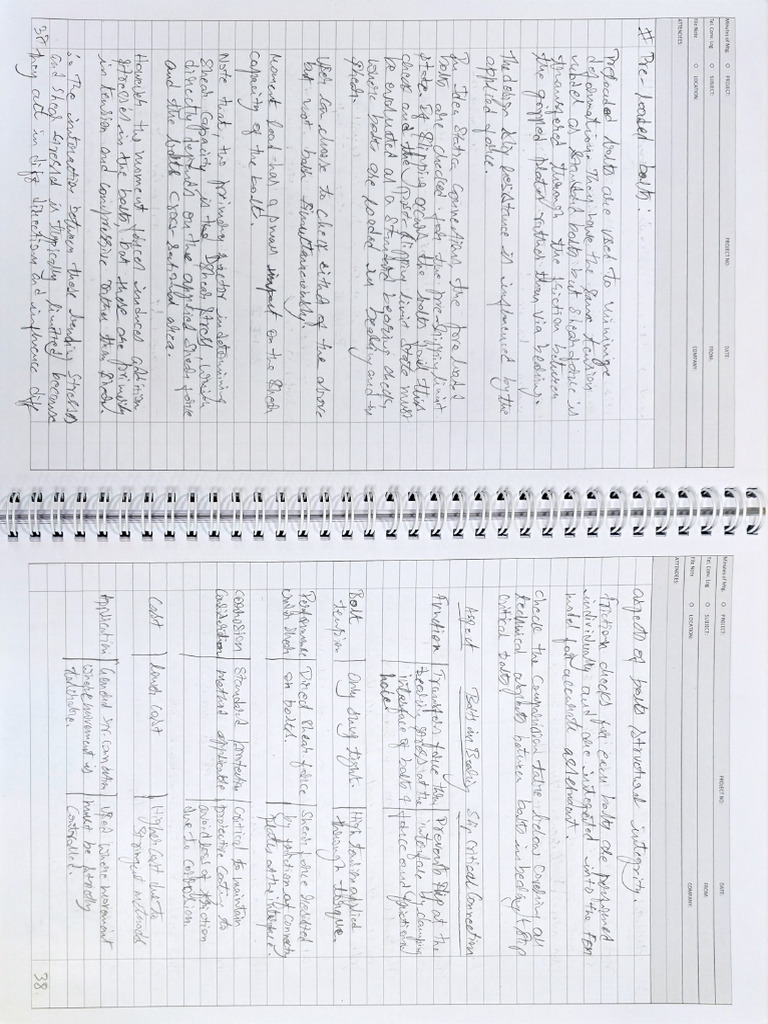 Minutes of Mtg. O PROJECT: PROJECT NO: DATE:
Tel. Conv. Log O SUBJECT: FROM:
File Note O LOCATION: COMPANY:
ATTENDEES:
# Pre-loaded bolts:
Preloaded bolts are used to minimize
deformation. They have the same tension
model as standard bolts but shear force is
transferred through the friction between
the gripped plates rather than via bearing.
The design slip resistance is influenced by the
applied force.
In Idea Statica Connection, the pre load
bolts are checked for the pre-slipping limit
state. If slipping occurs the bolts fail this
check and the post-slipping limit state must
be evaluated as a standard bearing check,
where bolts are loaded in bearing and to
shear.
User can choose to check either of the above
but not both simultaneously.
Moment load has a small impact on the shear
capacity of the bolt.
Note that, the primary factor in determining
shear capacity is the shear stress, which
directly depends on the applied shear force
and the bolts cross-sectional area.
However the moment forces induces addition
stresses in the bolts, but these are primarily
in tension and compressive rather than shear.
∴ The interaction between these bending stresses
and shear stresses is typically limited because
they act in diff directions and influence diff
37
Minutes of Mtg. O PROJECT: PROJECT NO: DATE:
Tel. Conv. Log O SUBJECT: FROM:
File Note O LOCATION: COMPANY:
ATTENDEES:
aspects of bolts structural integrity.
friction checks for each bolts are performed
individually and are integrated into the FEM
model for accurate assessment.
Check the comparison table below covering all
technical aspects between bolts in bearing & slip
critical bolts
Aspect Bolts in Bearing Slip critical connection
Function Transfer force thru Prevents slip at the
bearing stress at the interface by clamping
interface of bolts & force and frictional
hole.
Bolt Only snug tight. High tension applied
tension through torque.
Performance Direct shear force Shear force resisted
under shear on bolts. by friction of connecting
plates at the interface
corrosion Standard protective Critical to maintain
consideration method applicable protective coating to
avoid loss of friction
due to corrosion
Cost Lower cost Higher cost due to
stringent methods
Application General str. connection Used where movement
where movement is must be strictly
tolerable. controlled.
38